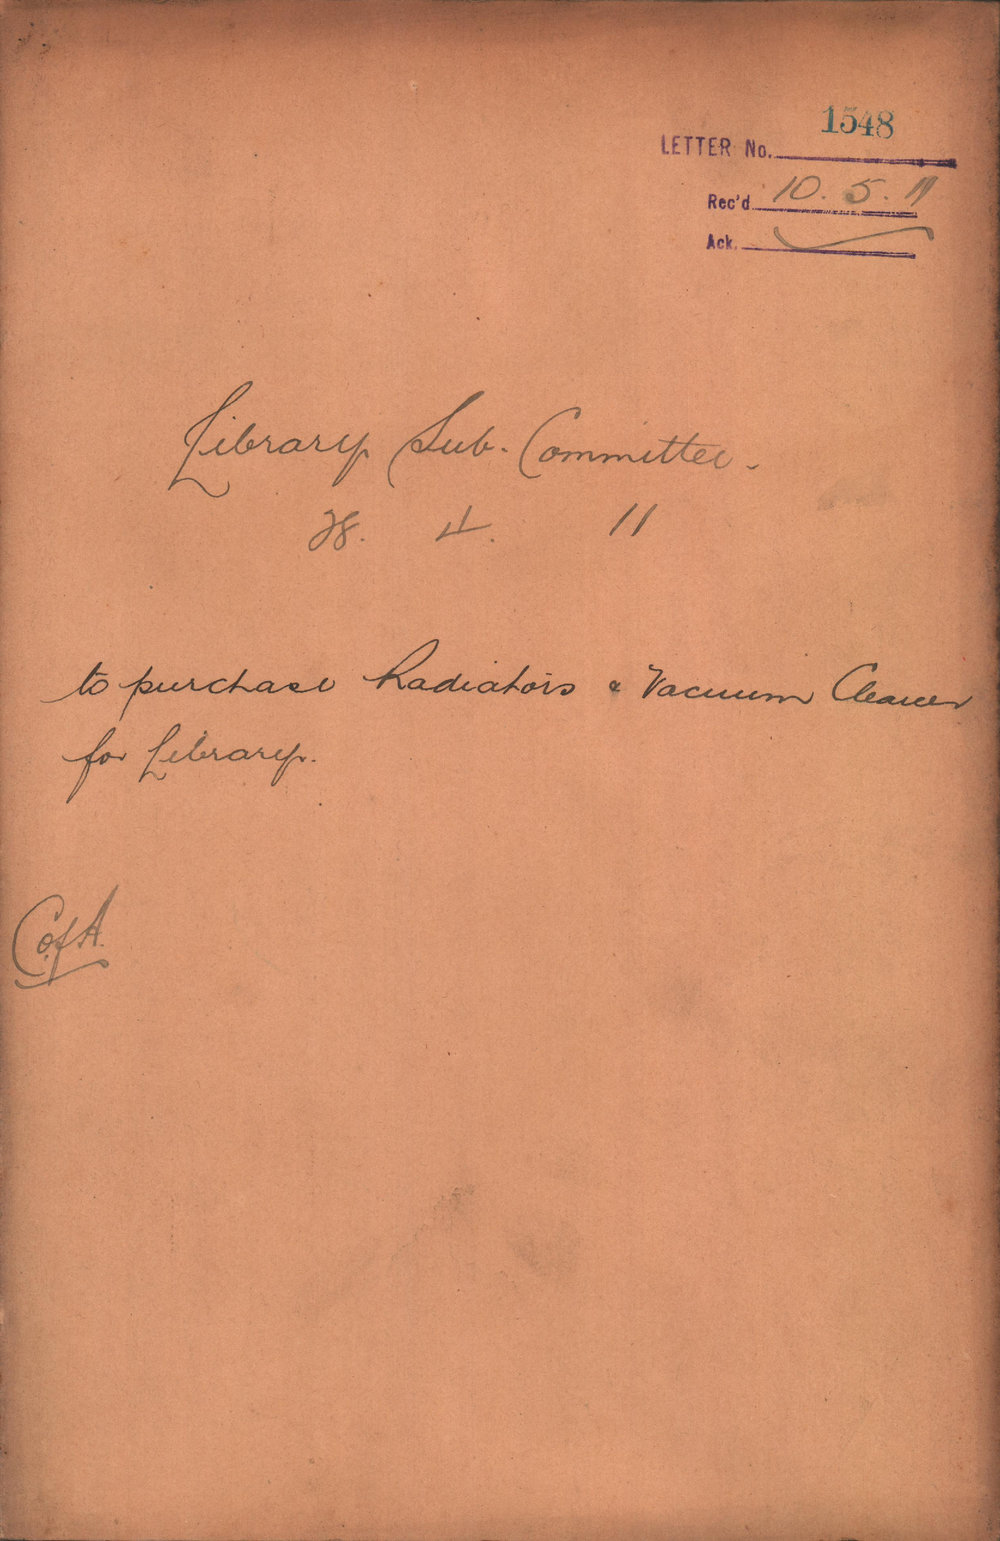 1548
LETTER No.
Rec'd 10. 5. 11
Ack.
Library Sub-Committee.
28. 4. 11
to purchase Radiators & Vacuum Cleaner
for Library.
C. of A.